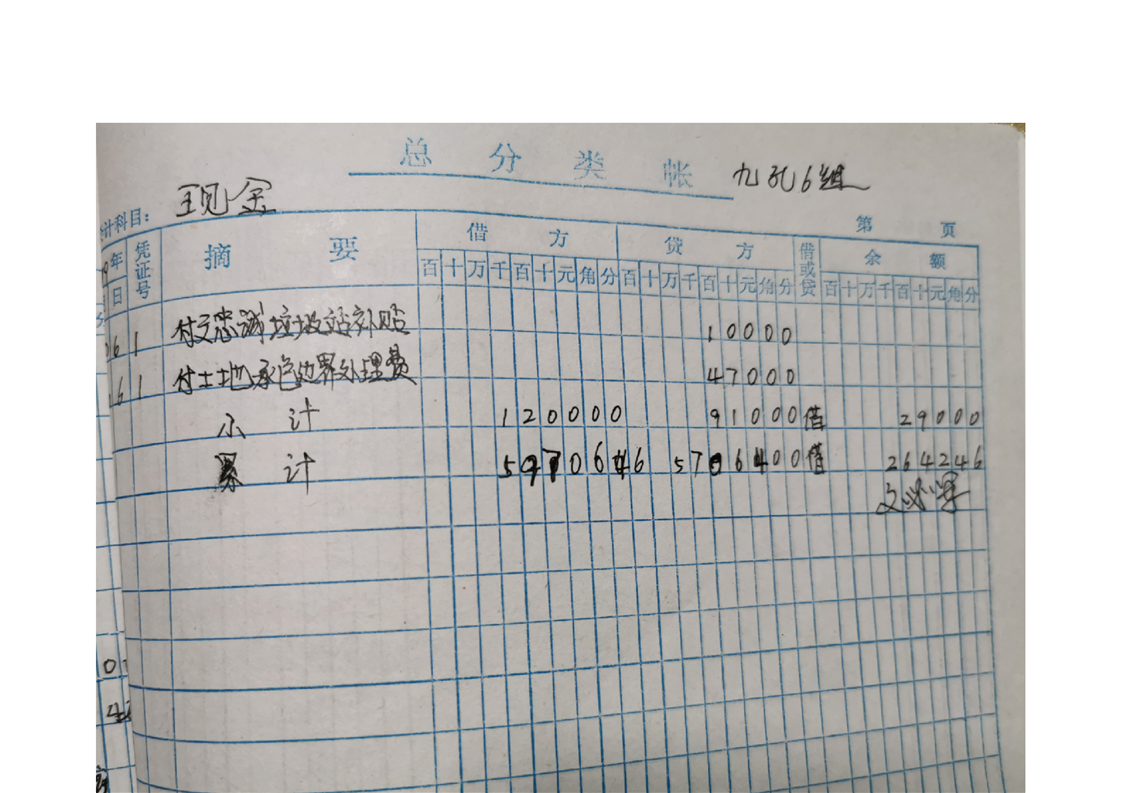 总分类帐
九孔6组
计科目：现金
第 页
年 凭证号 摘要 借方 贷方 借或贷 余额
日 百十万千百十元角分 百十万千百十元角分 百十万千百十元角分
6 1 付文忠诚垃圾站补贴 10000
6 1 付土地承包边界处理费 47000
小计 120000 91000 借 29000
累计 借 264246